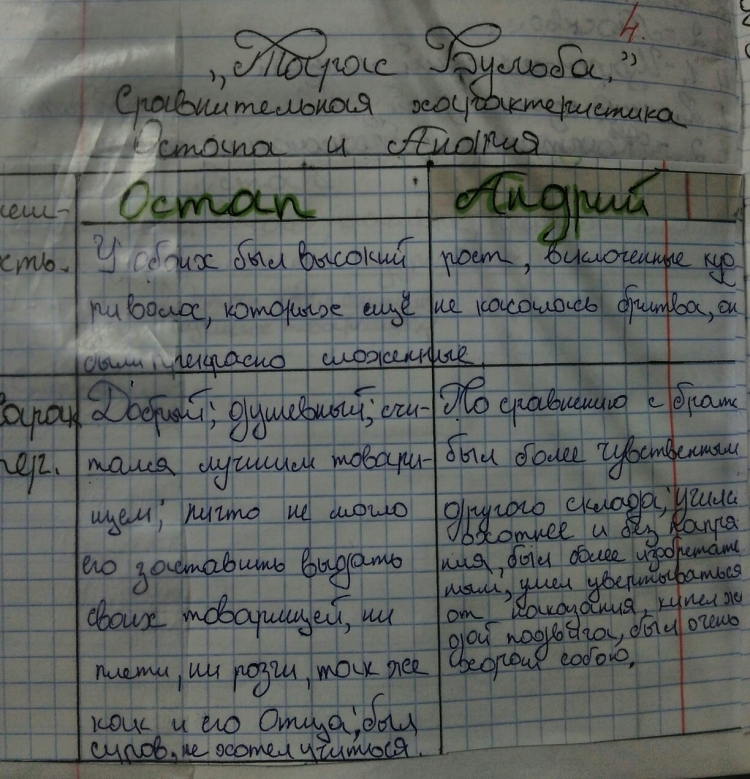 4.
„Тарас Бульба."
Сравнительная характеристика
Остапа и Андрия
Остап
Андрий
У обоих был высокий рост, всклоченные
которых ещё не касалась бритва, он
были прекрасно сложенные
Добрый; душевный; счи-
тался лучшим товари-
щем; ничто не могло
его заставить выдать
своих товарищей, ни
плети, ни розги, так же
как и его Отца; был
суров, не хотел учиться.
По сравнению с брат
был более чувственным
другого склада; учился
охотнее и без напря
ния, был более изобретате
ным, умел увертываться
от наказания, кипел ж
дой подвига, был очень
хорош собою.